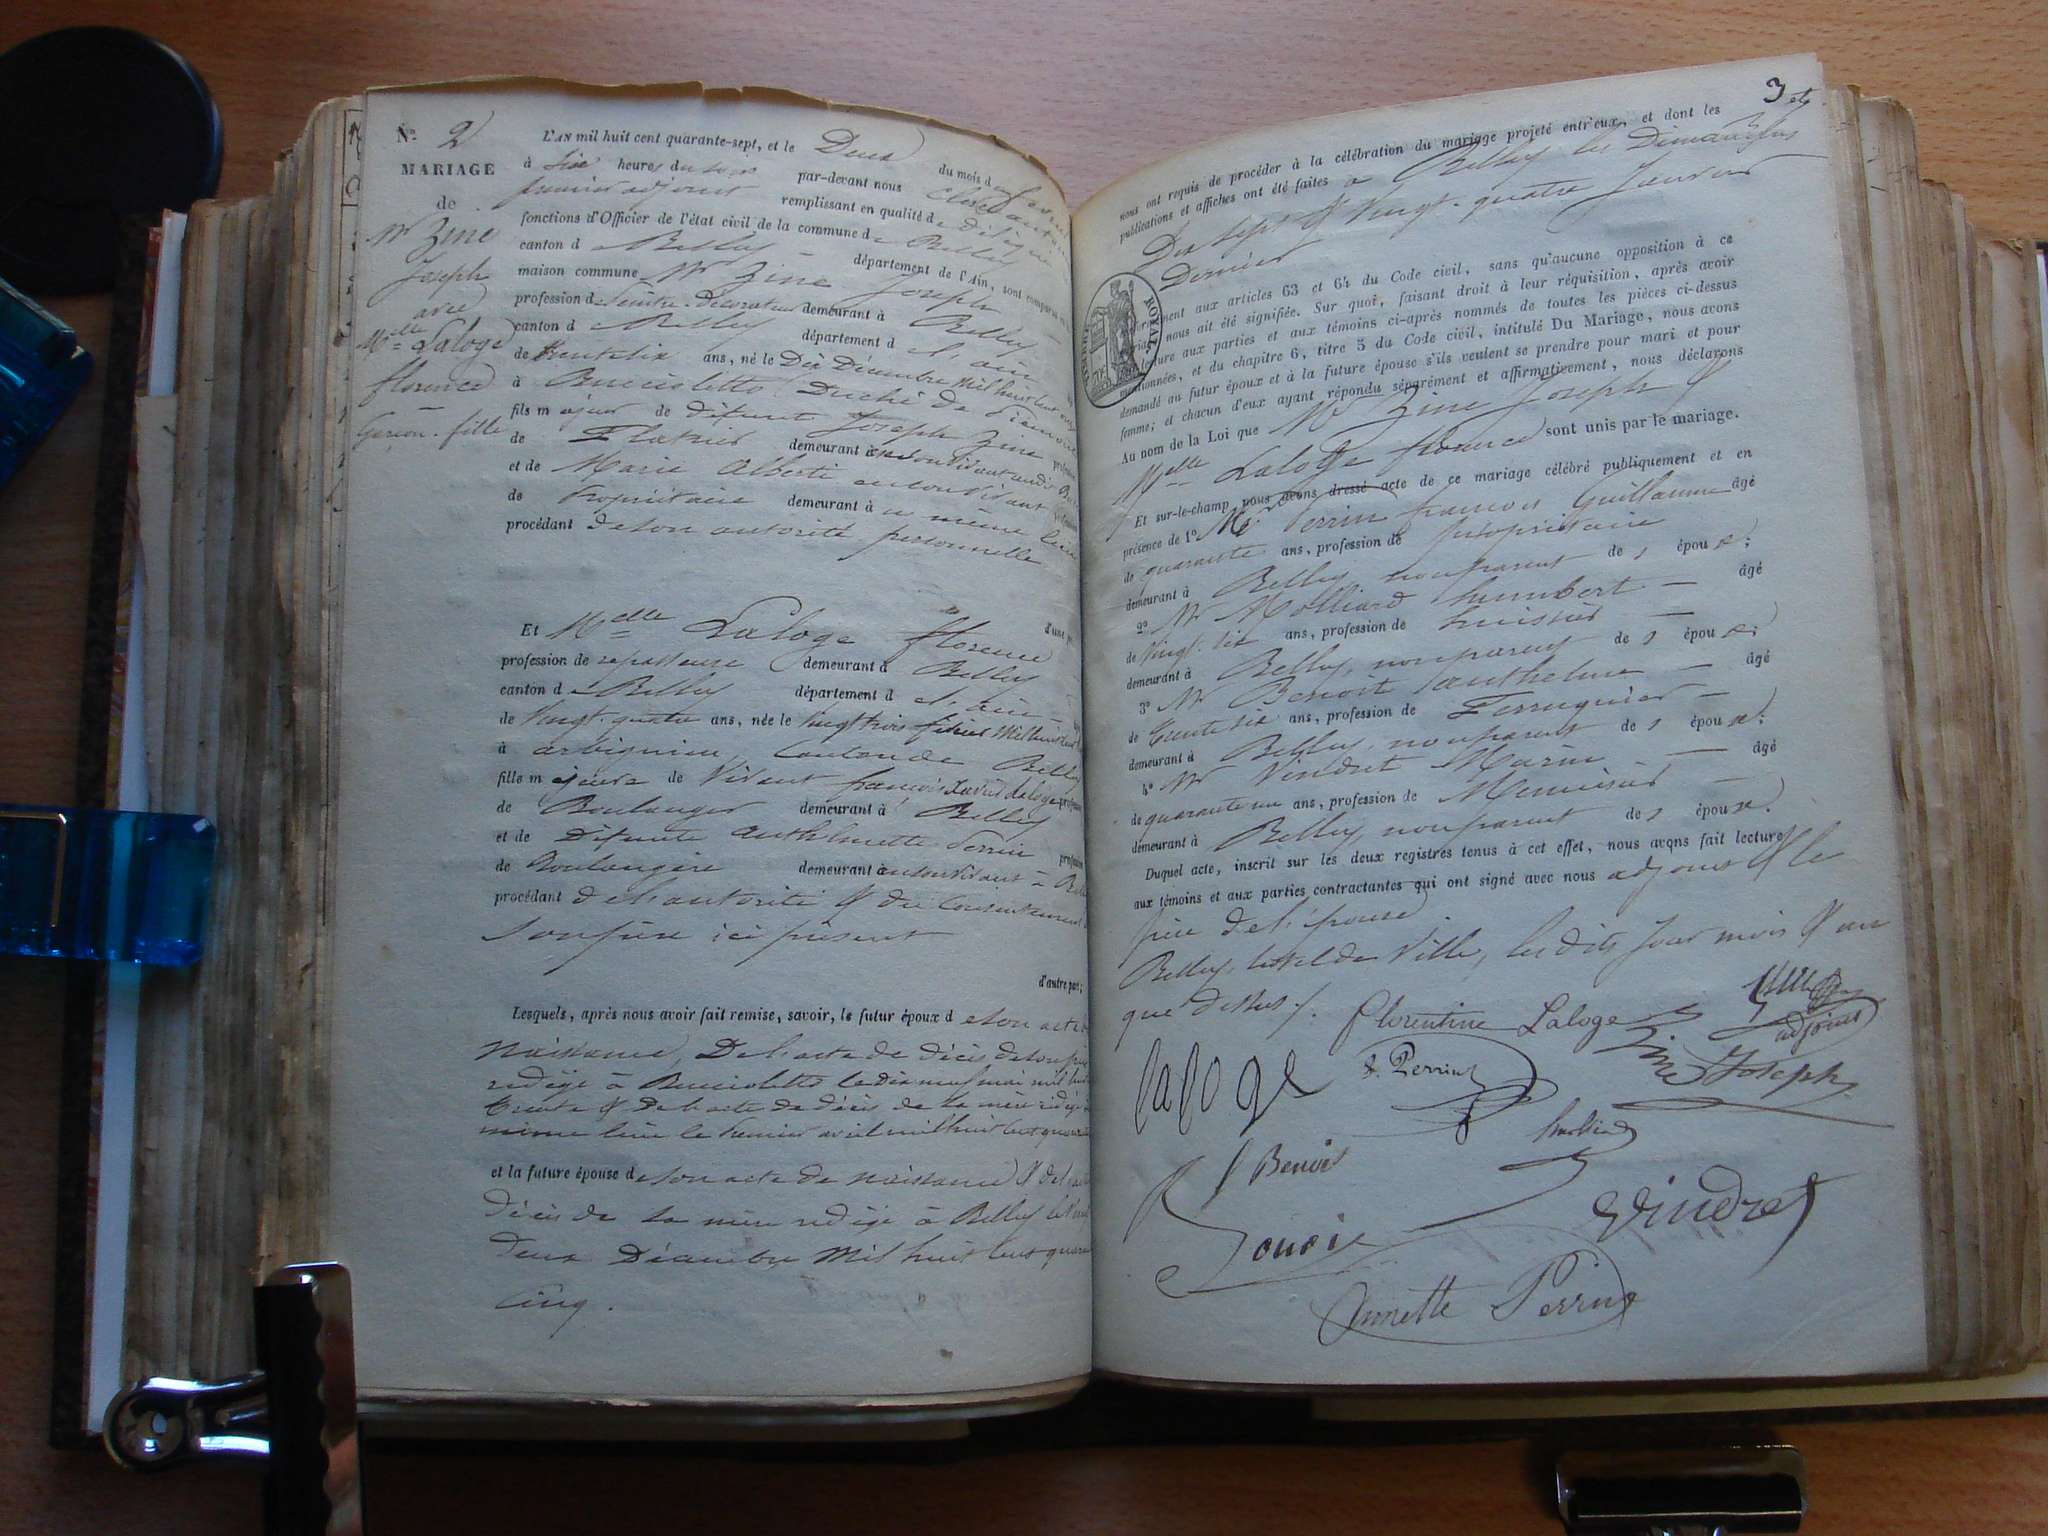 No. 2
MARIAGE
de
Mr Zine
Joseph
avec
Melle Laloge
florence
Garçon - fille
L'AN mil huit cent quarante-sept, et le Deux du mois de
à Six heures du soir par-devant nous
premier adjoint remplissant en qualité de Délégué
fonctions d'Officier de l'état civil de la commune de Belley
canton de Belley département de l'Ain, sont comparus en la
maison commune Mr Zine Joseph
profession de Peintre Décorateur demeurant à Belley
canton de Belley département de l'ain
de trente six ans, né le Dix Décembre mil huit cent
à Buccioletto Duché de
fils majeur de défunt Joseph Zine
de Platrier demeurant à en son vivant audit
et de Marie Alberti en son vivant
de Propriétaire demeurant à u même lieu
procédant de son autorité personnelle
d'une part
Et Melle Laloge florence
profession de repasseuse demeurant à Belley
canton de Belley département de l'ain
de Vingt quatre ans, née le Vingt trois février Mil huit cent
à arbignieu, Canton de Belley
fille majeure de Vivant françois Xavier Laloge profession
de Boulanger demeurant à Belley
et de Défunte Anthelmette Perrin profession
de Boulangère demeurant à en son vivant à
procédant de l'autorité & du Consentement de
Son père ici présent
d'autre part;
Lesquels, après nous avoir fait remise, savoir, le futur époux de son acte de
Naissance, De l'acte de décès de son père
rédigé à Buccioletto le dix neuf mai mil huit
trente & De l'acte de décès de la mère rédigé
même lieu le premier avril mil huit cent
et la future épouse de son acte de naissance & de l'acte
décès de sa mère rédigé à Belley le Vingt
deux Décembre Mil huit cent quarante
Cinq.
3
nous ont requis de procéder à la célébration du mariage projeté entr'eux, et dont les
publications et affiches ont été faites à Belley les Dimanches
Dix Sept & Vingt-quatre Janvier
Dernier
aux articles 63 et 64 du Code civil, sans qu'aucune opposition à ce
nous ait été signifiée. Sur quoi, faisant droit à leur réquisition, après avoir
lecture aux parties et aux témoins ci-après nommés de toutes les pièces ci-dessus
mentionnées, et du chapitre 6, titre 5 du Code civil, intitulé Du Mariage, nous avons
demandé au futur époux et à la future épouse s'ils veulent se prendre pour mari et pour
femme; et chacun d'eux ayant répondu séparément et affirmativement, nous déclarons
ROYAL
Au nom de la Loi que Mr Zine Joseph &
Melle Laloge florence sont unis par le mariage.
Et sur-le-champ nous avons dressé acte de ce mariage célébré publiquement et en
présence de 1º Mr Perrin francois Guillaume âgé
de quarante ans, profession de propriétaire
demeurant à Belley, non parent des époux;
2º Mr Molliard humbert âgé
de Vingt six ans, profession de huissier
demeurant à Belley, non parent des époux;
3º Mr Benoit Anthelme âgé
de trente six ans, profession de Perruquier
demeurant à Belley, non parent des époux;
4º Mr Vindret Marin âgé
de quarante un ans, profession de Menuisier
demeurant à Belley, non parent des époux.
Duquel acte, inscrit sur les deux registres tenus à cet effet, nous avons fait lecture
aux témoins et aux parties contractantes qui ont signé avec nous adjoint & le
père de l'épouse
Belley, hotel de Ville, les dits Jour mois & an
que dessus.
Florentine Laloge
adjoint
Laloge
Perrin
Zine Joseph
Benoit
Vindret
Annette Perrin